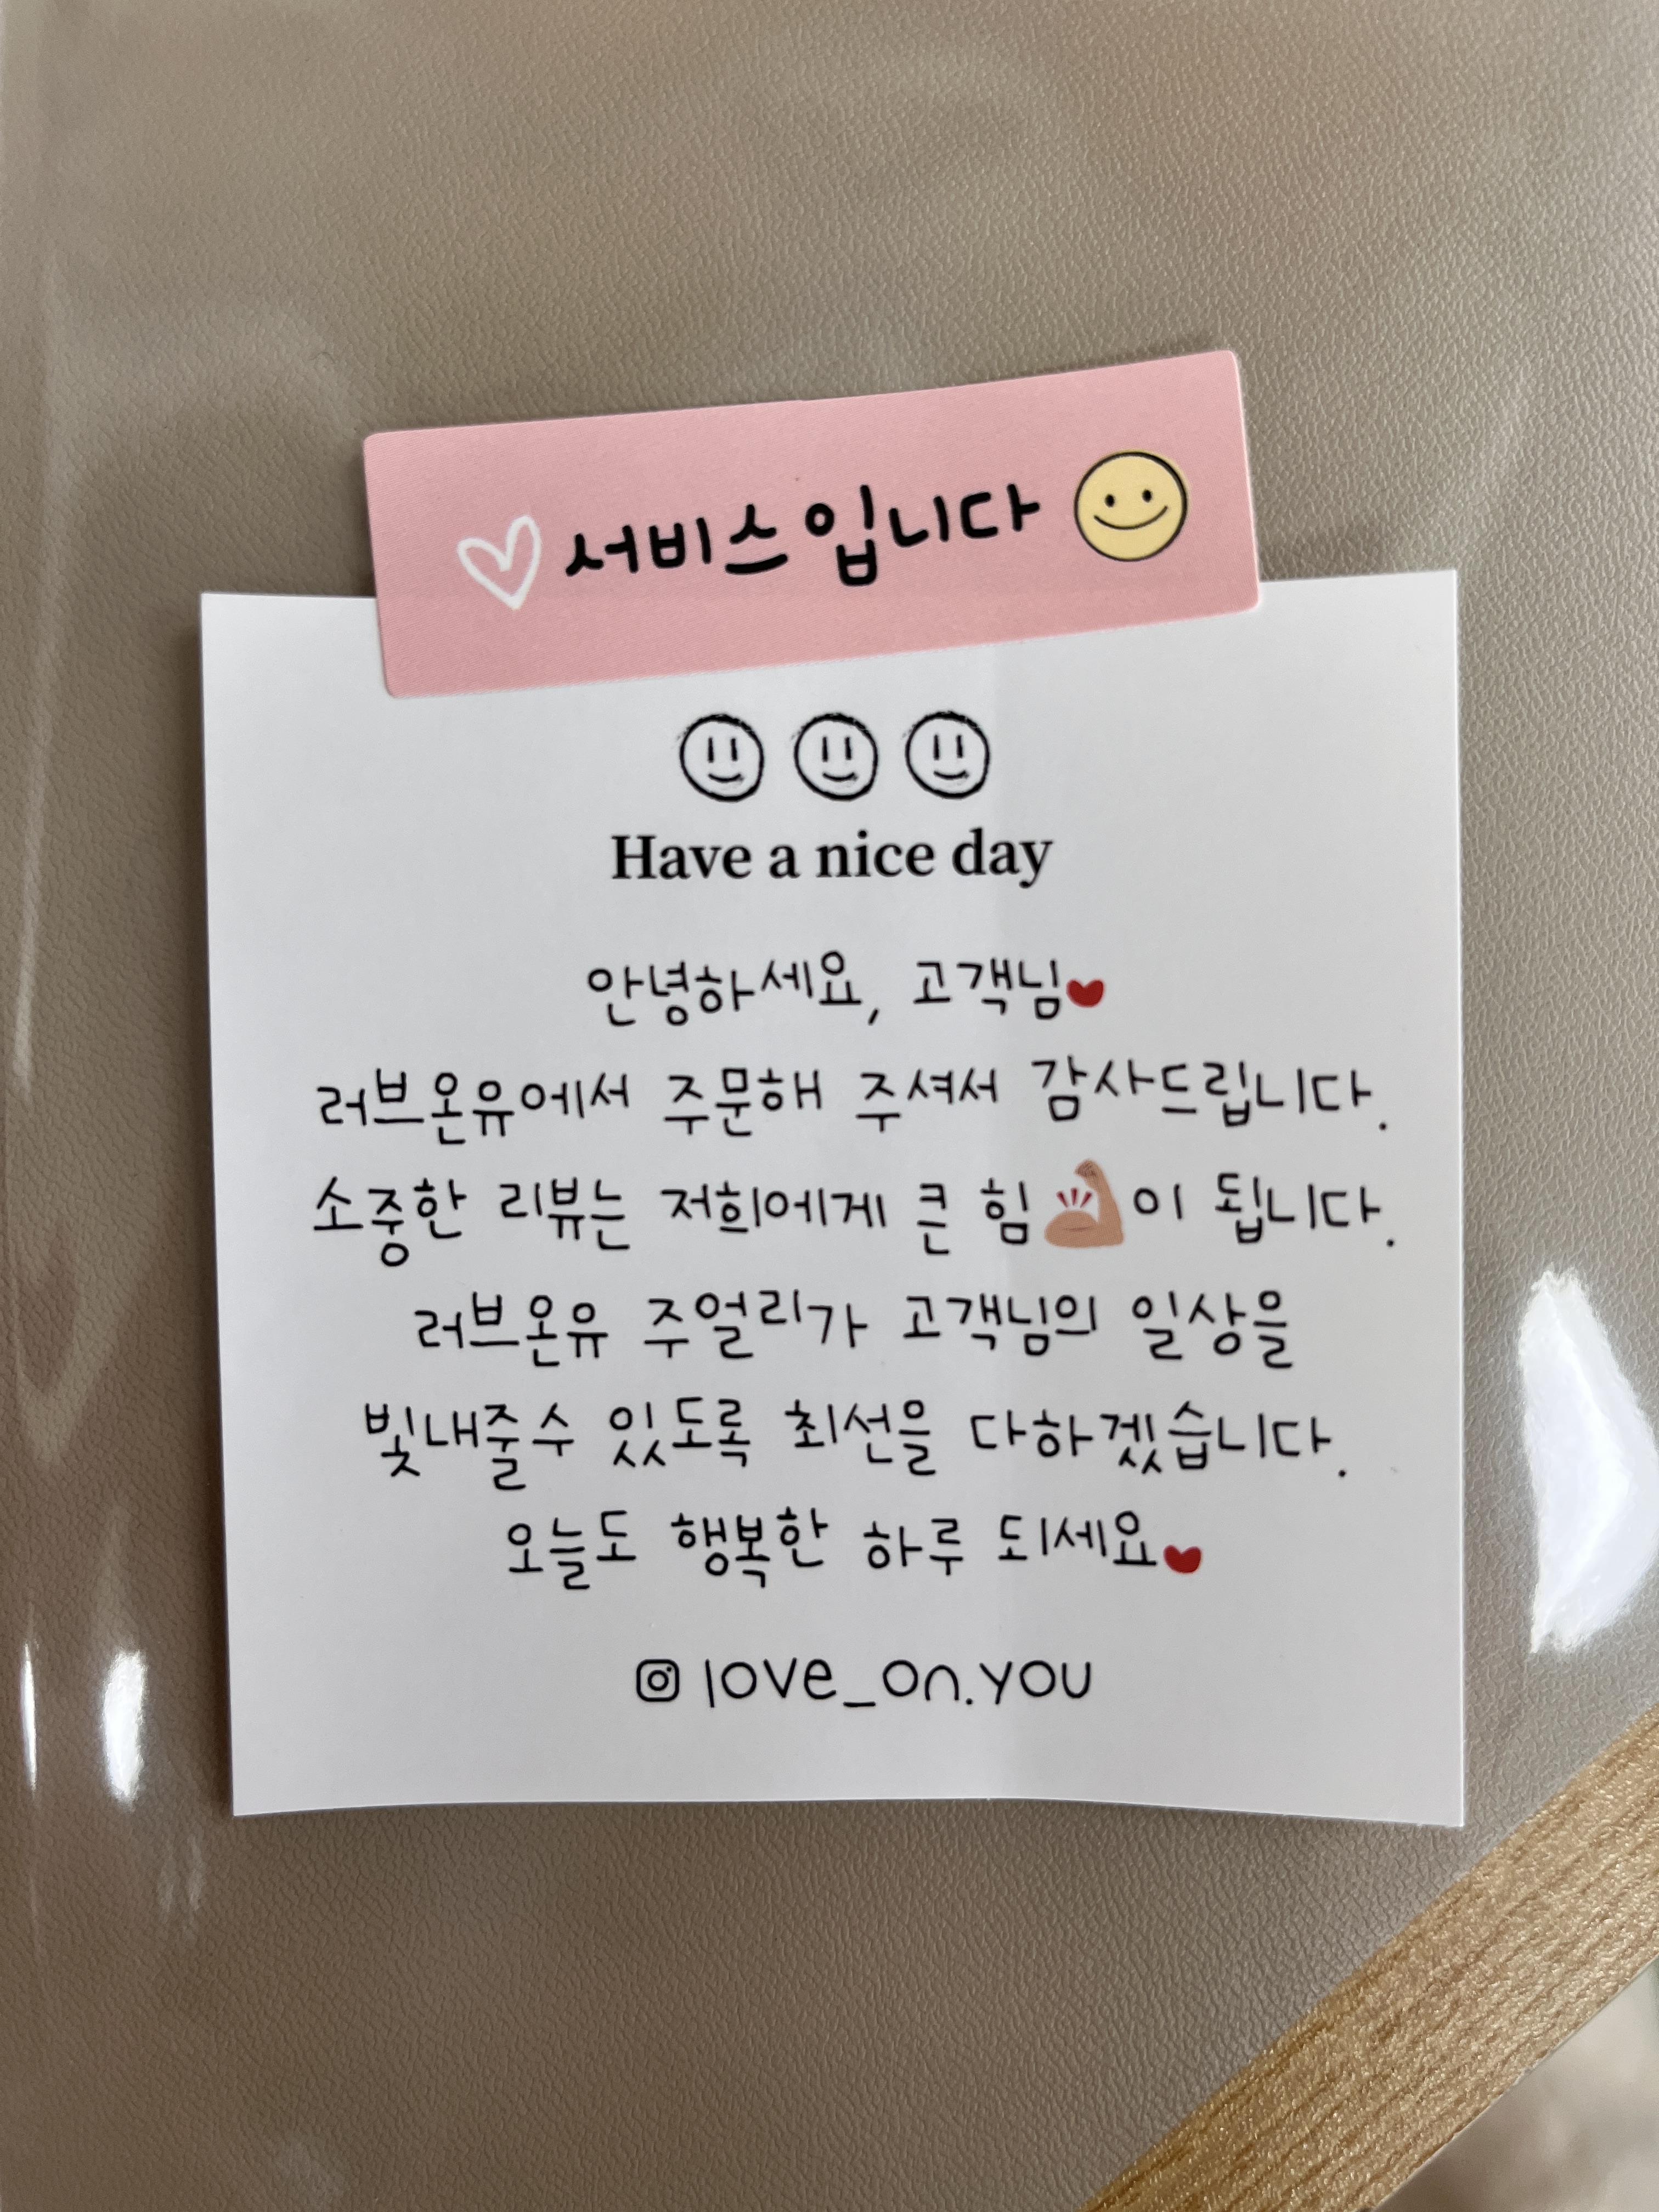 서비스입니다
Have a nice day
안녕하세요, 고객님
러브온유에서 주문해 주셔서 감사드립니다.
소중한 리뷰는 저희에게 큰 힘이 됩니다.
러브온유 주얼리가 고객님의 일상을
빛내줄수 있도록 최선을 다하겠습니다.
오늘도 행복한 하루 되세요
love_on.you